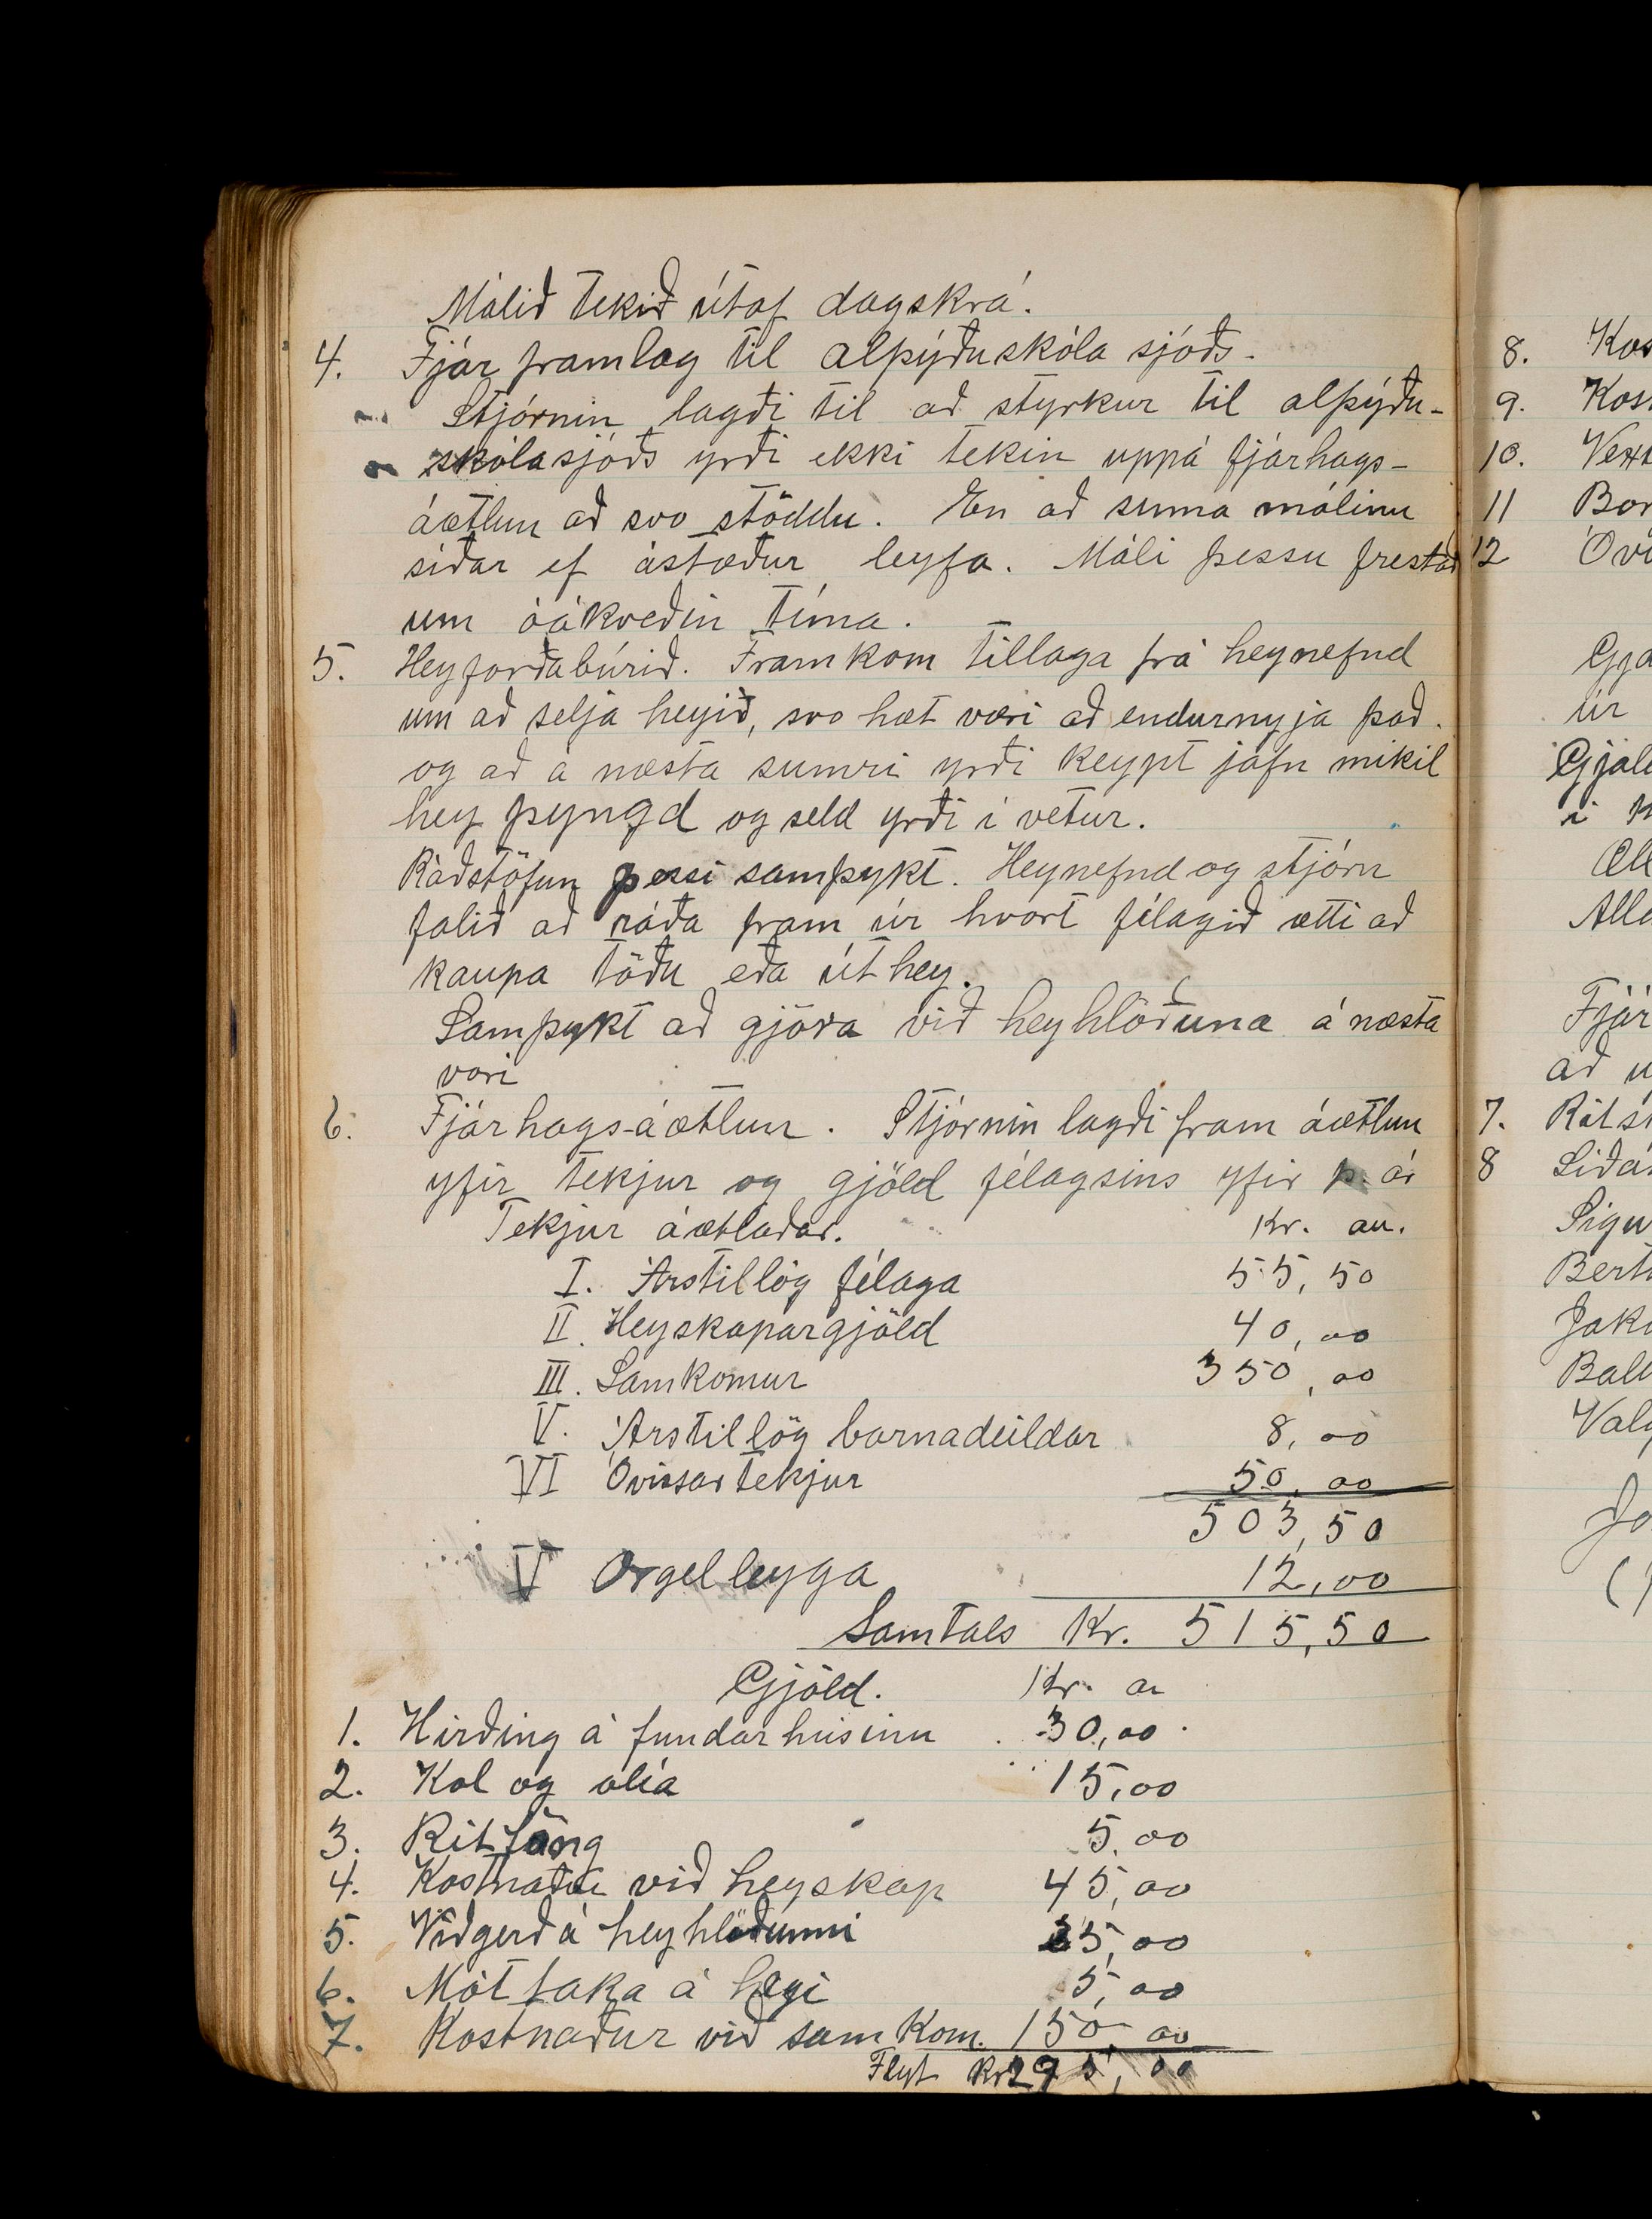 Málið tekið útaf dagskrá.
4. Fjár framlag til alþýðuskóla sjóðs.
Stjórnin lagði til að styrkur til alþýðu-
skólasjóðs yrði ekki tekin uppá fjárhags-
áætlun að svo stöddu. En að sinna málinu
síðar ef ástæður leyfa. Máli þessu frestað
um óákveðin tíma.
5. Heyforðabúrið. Framkom tillaga frá heynefnd
um að selja heyið, svo hæt væri að endurnyja það.
og að á næsta sumri yrði keypt jafn mikil
hey þyngd og seld yrði í vetur.
Ráðstöfun þessi samþykt. Heynefnd og stjórn
falið að ráða fram úr hvort félagið ætti að
kaupa töðu eða úthey.
Samþykt að gjöra við heyhlöðuna á næsta
vori
6. Fjárhags-áætlun. Stjórnin lagði fram áætlun
yfir tekjur og gjöld félagsins yfir þ. ár
Tekjur áætlaðar. Kr. au.
I. Árstillög félaga 55,50
II. Heyskapargjöld 40,00
III. Samkomur 350,00
V. Árstillög barnadeildar 8,00
VI Óvissar tekjur 50,00
503,50
V Orgelleyga 12,00
Samtals Kr. 515,50
Gjöld. Kr. a
1. Hirðing á fundarhúsinu 30,00
2. Kol og olía 15,00
3. Ritföng 5,00
4. Kostnaður við heyskap 45,00
5. Viðgerð á heyhlöðunni 35,00
6. Móttaka á heyi 5,00
7. Kostnaður við samkom. 150,00
Flyt Kr 295,00
8.
9.
10.
11
12
úr
í
að
7.
8